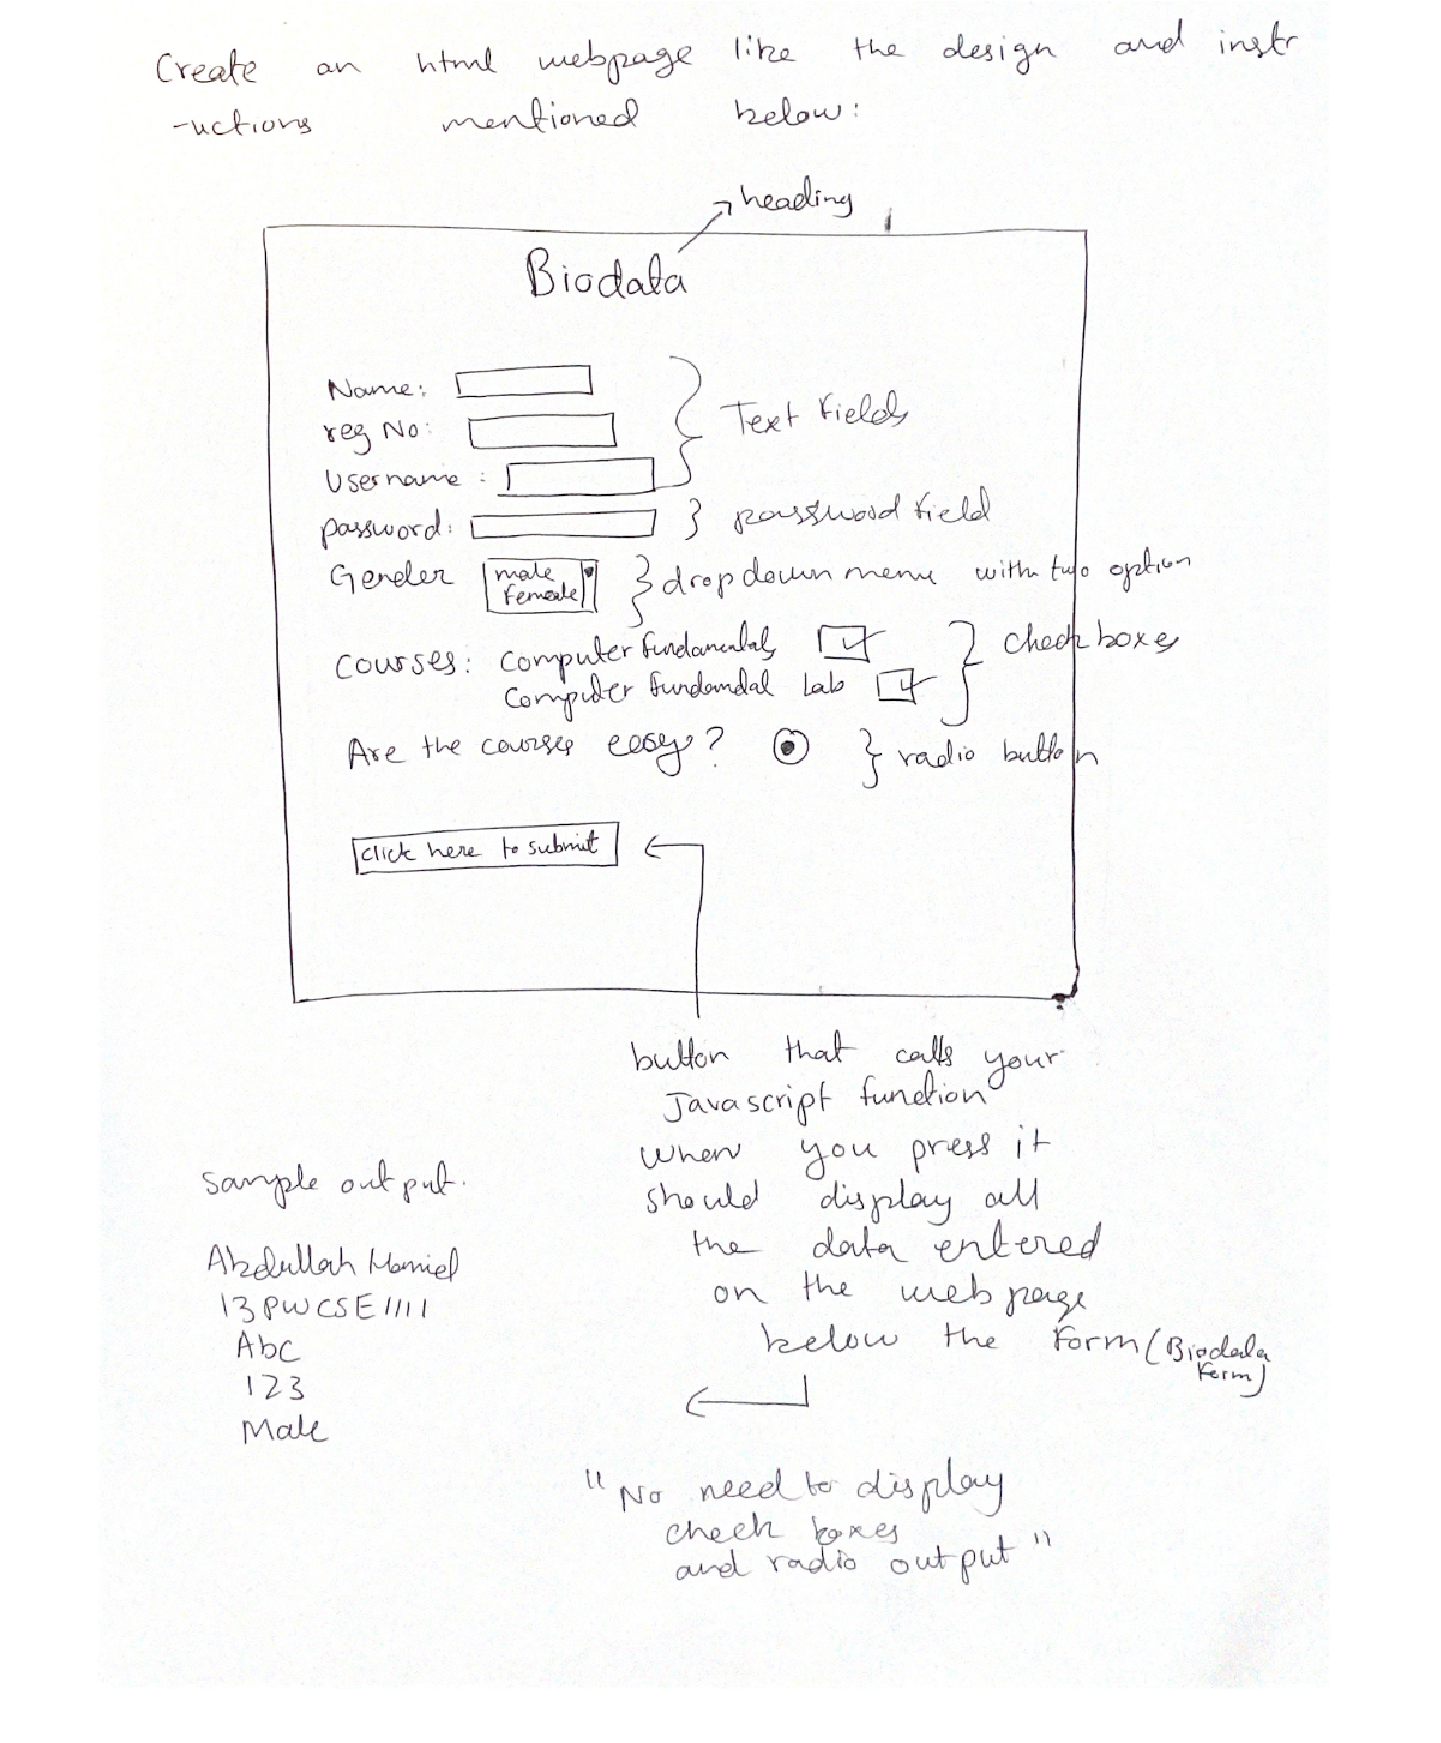 Create an html webpage like the design and instr
-uctions mentioned below:
heading
Biodata
Name:
Text Fields
reg No:
Username :
password:
} password field
Gender
male
Female
} dropdown menu with two option
Courses: Computer fundamentals
} check boxes
Computer fundamdal Lab
Are the courses easy?
} radio button
click here to submit
button that calls your
Javascript function
when you press it
should display all
the data entered
on the webpage
below the Form (Biodata
Form)
Sample output.
Abdullah Hamid
13PWCSE1111
Abc
123
Male
"No need to display
check boxes
and radio output"